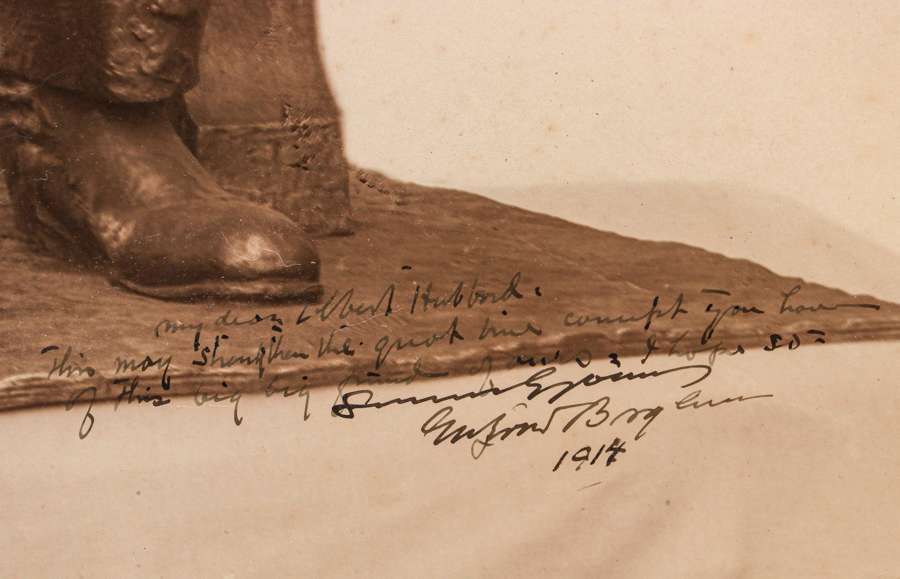 my dear Elbert Hubbard.
This may strengthen the great concept you have
of this big big friend of I hope so -
Gutzon Borglum
1914